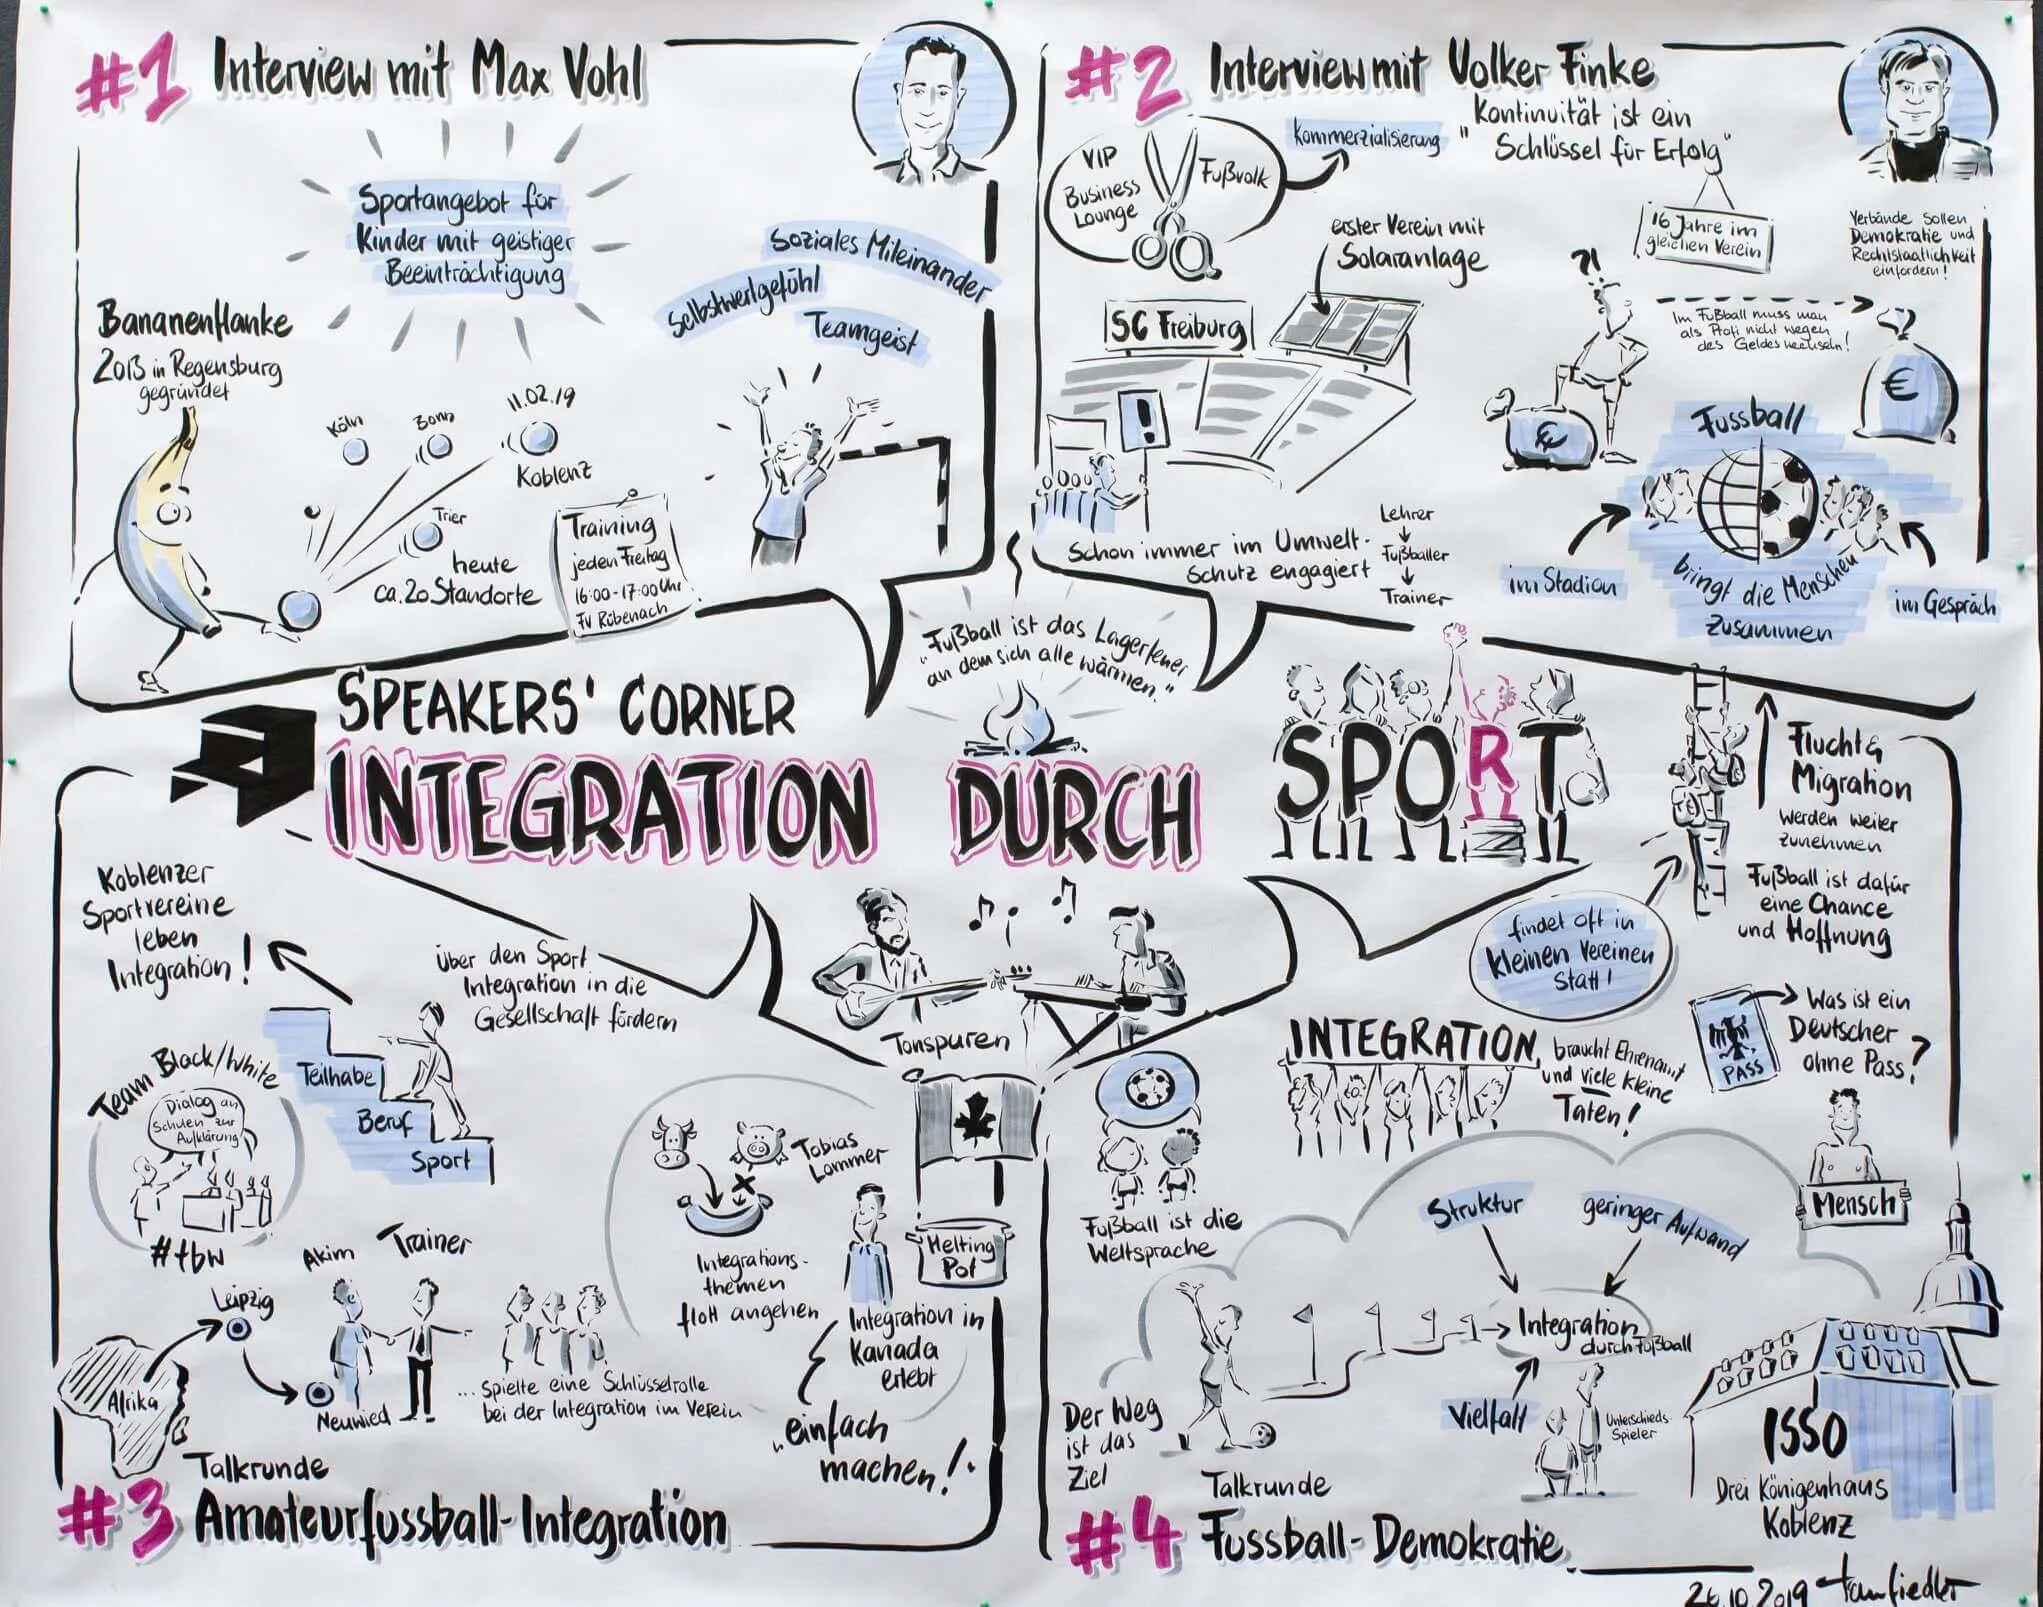 #1 Interview mit Max Vohl
Sportangebot für
Kinder mit geistiger
Beeinträchtigung
Bananenflanke
2013 in Regensburg
gegründet
Köln
Bonn
11.02.19
Koblenz
Trier
heute
ca. 20 Standorte
Training
jeden Freitag
16:00-17:00 Uhr
FV Rübenach
Soziales Miteinander
Selbstwertgefühl
Teamgeist
#2 Interview mit Volker Finke
"Kontinuität ist ein
Schlüssel für Erfolg"
16 Jahre im
gleichen Verein
Kommerzialisierung
VIP
Business
Lounge
Fußvolk
erster Verein mit
Solaranlage
SC Freiburg
!
Schon immer im Umwelt-
schutz engagiert
Lehrer
Fußballer
Trainer
?!
Im Fußball muss man
als Profi nicht wegen
des Geldes wechseln!
€
€
Verbände sollen
Demokratie und
Rechtstaatlichkeit
einfordern!
Fussball
bringt die Menschen
zusammen
im Stadion
im Gespräch
"Fußball ist das Lagerfeuer
an dem sich alle wärmen."
SPEAKERS' CORNER
INTEGRATION DURCH SPORT
Tonspuren
Koblenzer
Sportvereine
leben
Integration!
über den Sport
Integration in die
Gesellschaft fördern
Teilhabe
Beruf
Sport
Team Black/White
Dialog an
Schulen zur
Aufklärung
#tbw
Afrika
Leipzig
Neuwied
Akim
Trainer
... spielte eine Schlüsselrolle
bei der Integration im Verein
Tobias
Lommer
Integrations-
themen
flott angehen
Melting
Pot
Integration in
Kanada
erlebt
"einfach
machen!"
Talkrunde
#3 Amateurfussball-Integration
Flucht &
Migration
werden weiter
zunehmen
Fußball ist dafür
eine Chance
und Hoffnung
findet oft in
kleinen Vereinen
statt!
INTEGRATION
braucht Ehrenamt
und viele kleine
Taten!
PASS
Was ist ein
Deutscher
ohne Pass?
Mensch
Fußball ist die
Weltsprache
Struktur
geringer Aufwand
Integration
durch Fußball
Vielfalt
Unterschieds-
Spieler
Der Weg
ist das
Ziel
ISSO
Drei Königenhaus
Koblenz
Talkrunde
#4 Fussball-Demokratie
26.10.2019